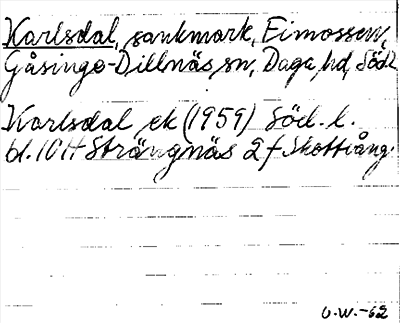 Karlsdal, sankmark, Eimossen,
Gåsinge-Dillnäs sn, Daga hd, Södl
Karlsdal ek (1959) Söd. l.
bl. 10H Strängnäs 2f Skottvång.
U.W.-62